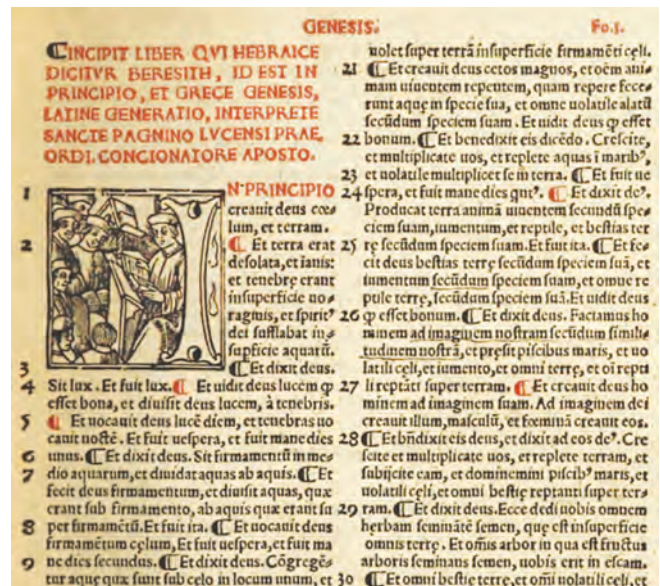 GENESIS. Fo.j.
¶INCIPIT LIBER QVI HEBRAICE
DICITVR BERESITH, ID EST IN
PRINCIPIO, ET GRECE GENESIS,
LATINE GENERATIO, INTERPRETE
SANCTE PAGNINO LVCENSI PRAE,
ORDI. CONCIONATORE APOSTO.
1 N PRINCIPIO
creauit deus cœ⸗
lum, et terram.
2 ¶ Et terra erat
deſolata, et inanis:
et tenebrę erant
inſuperficie uo⸗
raginis, et ſpirit⁹
dei ſufflabat in⸗
ſupficie aquarū.
3 ¶ Et dixit deus.
4 Sit lux. Et fuit lux. ¶ Et uidit deus lucem ꝙ
eſſet bona, et diuiſit deus lucem, à tenebris.
5 ¶ Et uocauit deus lucē diem, et tenebras uo
cauit noctē. Et fuit ueſpera, et fuit mane dies
6 unus. ¶ Et dixit deus. Sit firmamentū in me⸗
7 dio aquarum, et diuidat aquas ab aquis. ¶ Et
fecit deus firmamentum, et diuiſit aquas, quæ
erant ſub firmamento, ab aquis quæ erant ſu
8 per firmamētū. Et fuit ita. ¶ Et uocauit deus
firmamētum cęlum, Et fuit ueſpera, et fuit ma
9 ne dies ſecundus. ¶ Et dixit deus. Cōgregē⸗
tur aquę quæ ſunt ſub celo in locum unum, et
uolet ſuper terrā inſuperficie firmamēti cęli.
21 ¶ Et creauit deus cetos magnos, et oēm ani⸗
mam uiuentem repentem, quam repere fece⸗
runt aquę in ſpecie ſua, et omne uolatile alatū
ſecūdum ſpeciem ſuam. Et uidit deus ꝙ eſſet
22 bonum. ¶ Et benedixit eis dicēdo. Creſcite,
et multiplicate uos, et replete aquas ī marib⁹,
23 et uolatile multiplicet ſe in terra. ¶ Et fuit ue
24 ſpera, et fuit mane dies qnt⁹. ¶ Et dixit de⁹.
Producat terra animā uiuentem ſecundū ſpe⸗
ciem ſuam, iumentum, et reptile, et beſtias ter
25 rę ſecūdum ſpeciem ſuam. Et fuit ita. ¶ Et fe⸗
cit deus beſtias terrę ſecūdum ſpeciem ſuā, et
iumentum ſecūdum ſpeciem ſuam, et omne re
ptile terrę, ſecūdum ſpeciem ſuā. Et uidit deus
26 ꝙ eſſet bonum. ¶ Et dixit deus. Faciamus ho
minem ad imaginem noſtram ſecūdum ſimili⸗
tudinem noſtrā, et pręſit piſcibus maris, et uo
latili cęli, et iumento, et omni terrę, et oī repti
27 li reptāti ſuper terram. ¶ Et creauit deus ho
minem ad imaginem ſuam. Ad imaginem dei
creauit illum, maſculū, et fœminā creauit eos.
28 ¶ Et bn̄dixit eis deus, et dixit ad eos de⁹. Cre
ſcite et multiplicate uos, et replete terram, et
ſubijcite eam, et dominemini piſcib⁹ maris, et
uolatili cęli, et omni beſtię reptanti ſuper ter⸗
29 ram. ¶ Et dixit deus. Ecce dedi uobis omnem
herbam ſeminātē ſemen, quę eſt inſuperficie
omnis terrę. Et om̄is arbor in qua eſt fructus
arboris ſeminans ſemen, uobis erit in eſcam.
30 ¶ Et omni beſtię terrę, et om̄i uolatili cęli, et